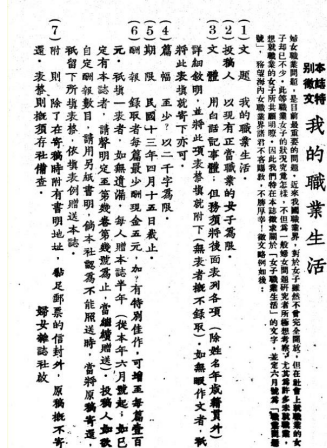 本誌特別徵文
我的職業生活
婦女職業問題，是目前最重要的問題。近來我國職業界，對於女子雖然不曾完全開放，但在社會上就職業的女子却已不少。此等職業女子的狀況究竟怎樣，不但爲一般婦女問題研究者所極想考察，尤其爲許多未就職業
想就職業的女子所共願明瞭。因此我們特在本誌徵求關於「女子職業生活」的文字，並定六月號爲「職業問題
號」，希望海內女職業界諸君不吝賜敎，不勝厚幸！徵文略例如後：
（1）文　題　我的職業生活。
（2）投稿人　以現有正當職業的女子爲限。
（3）文　體　用白話記事體，但務須將後面表列各項（除姓名年歲籍貫外）
詳細敘明，並將此項表替填就附下（無表者概不錄取），如無暇作文者，祇
將此表填就寄下亦可。
（4）篇　幅　至少？以二千字爲限。
（5）期　限　民國十三年四月十五日截止。
（6）報　酬　錄取者每篇最少酬現金五元，加有特別佳作，可增至每篇壹百
元。祇填一表者，如無遺漏，每人贈本誌半年（從本年六月號起，如已
定有本誌者，請聲明定至第幾卷第幾號爲止，當繼續贈送）。投稿人如欲
自定酬報數目，請用另紙書明，倘本社認爲不能照送時，當將原稿寄還。
祇留下所填表替，依填表例贈送本誌。
（7）附　則　除了在寄稿時附有書明地址，黏足郵票的信封外，原稿概不寄
還。表替則概須存社備查。
婦女雜誌社啟